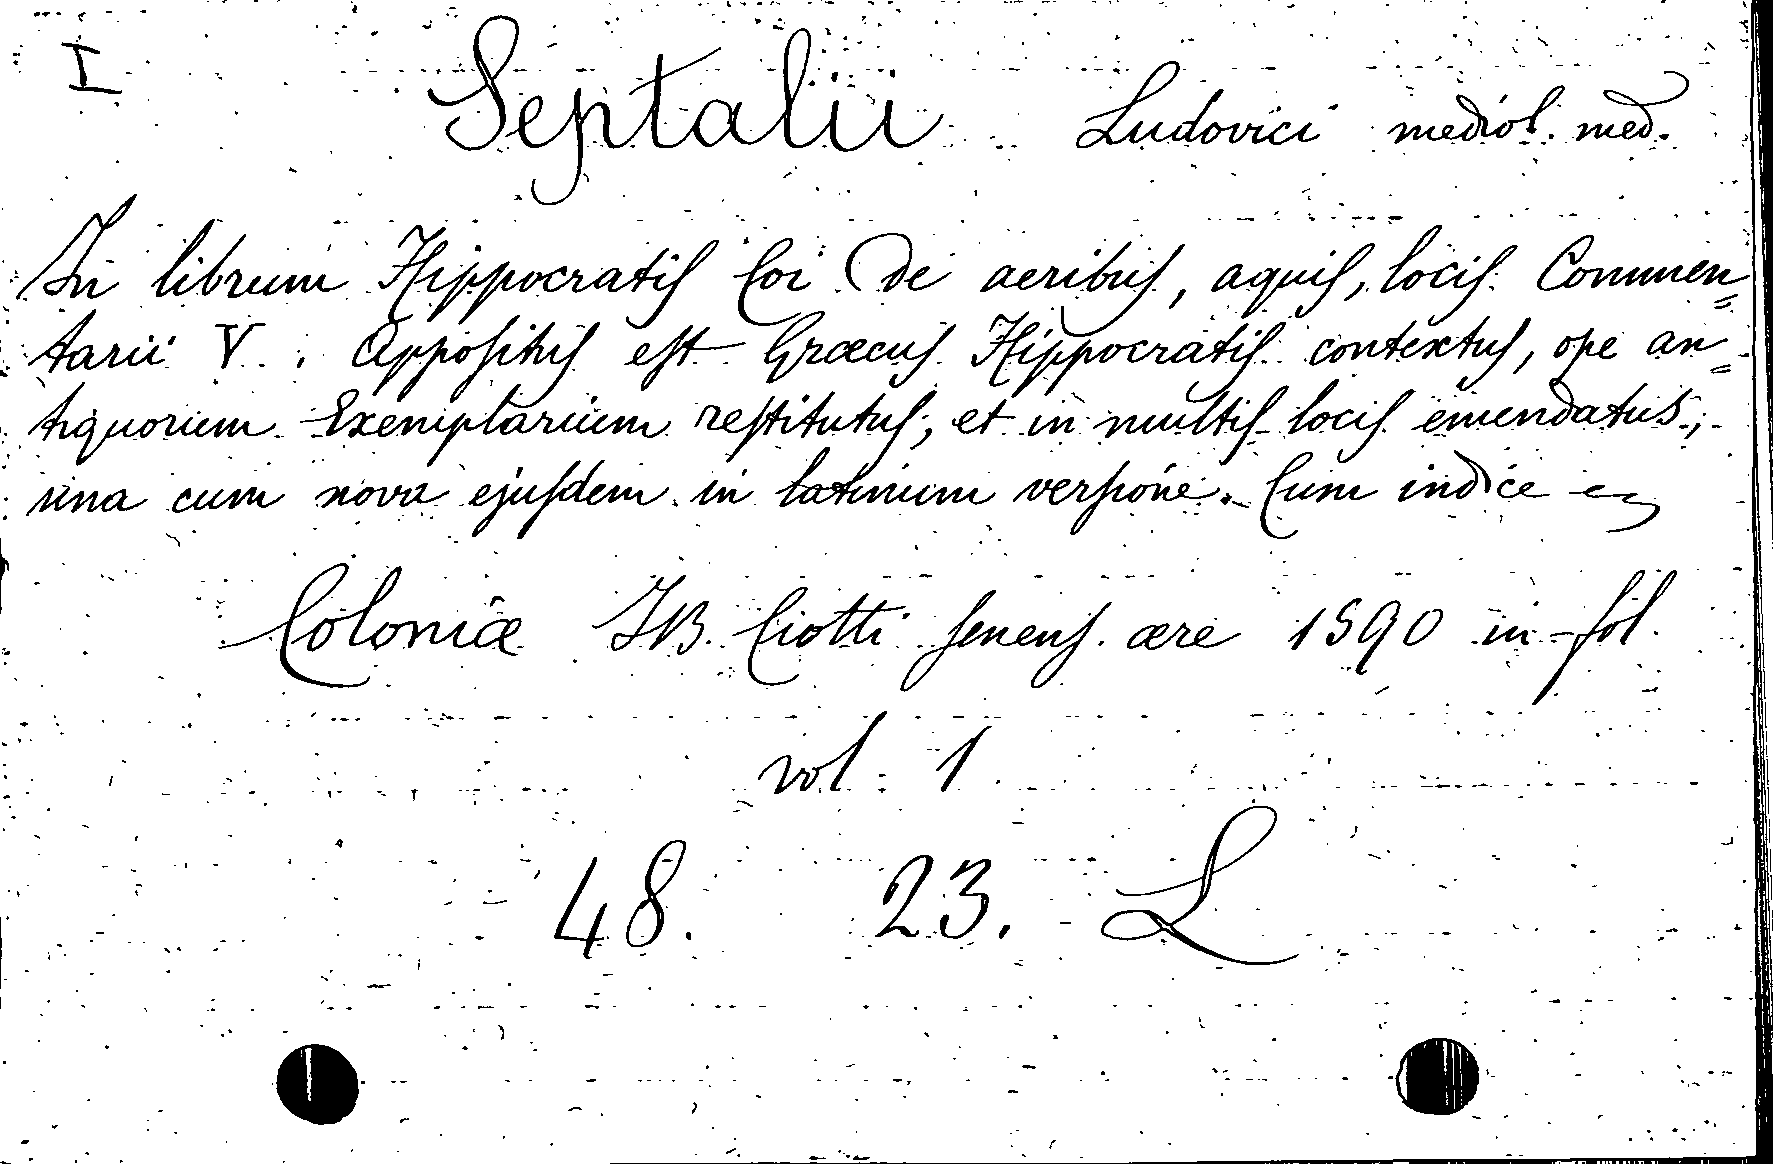 I
Septalii Ludovici mediol. med.
In librum Hippocratis Coi De aeribus, aquis, locis Commen=
tarii V. Appositus est Græcus Hippocratis contextus, ope an=
tiquorum Exemplarium restitutus, et in multis locis emendatus;
una cum nova ejusdem in latinum versione. Cum indice
Coloniæ JB. Ciotti senens. ære 1590 in-fol.
vol. 1
48. 23. L